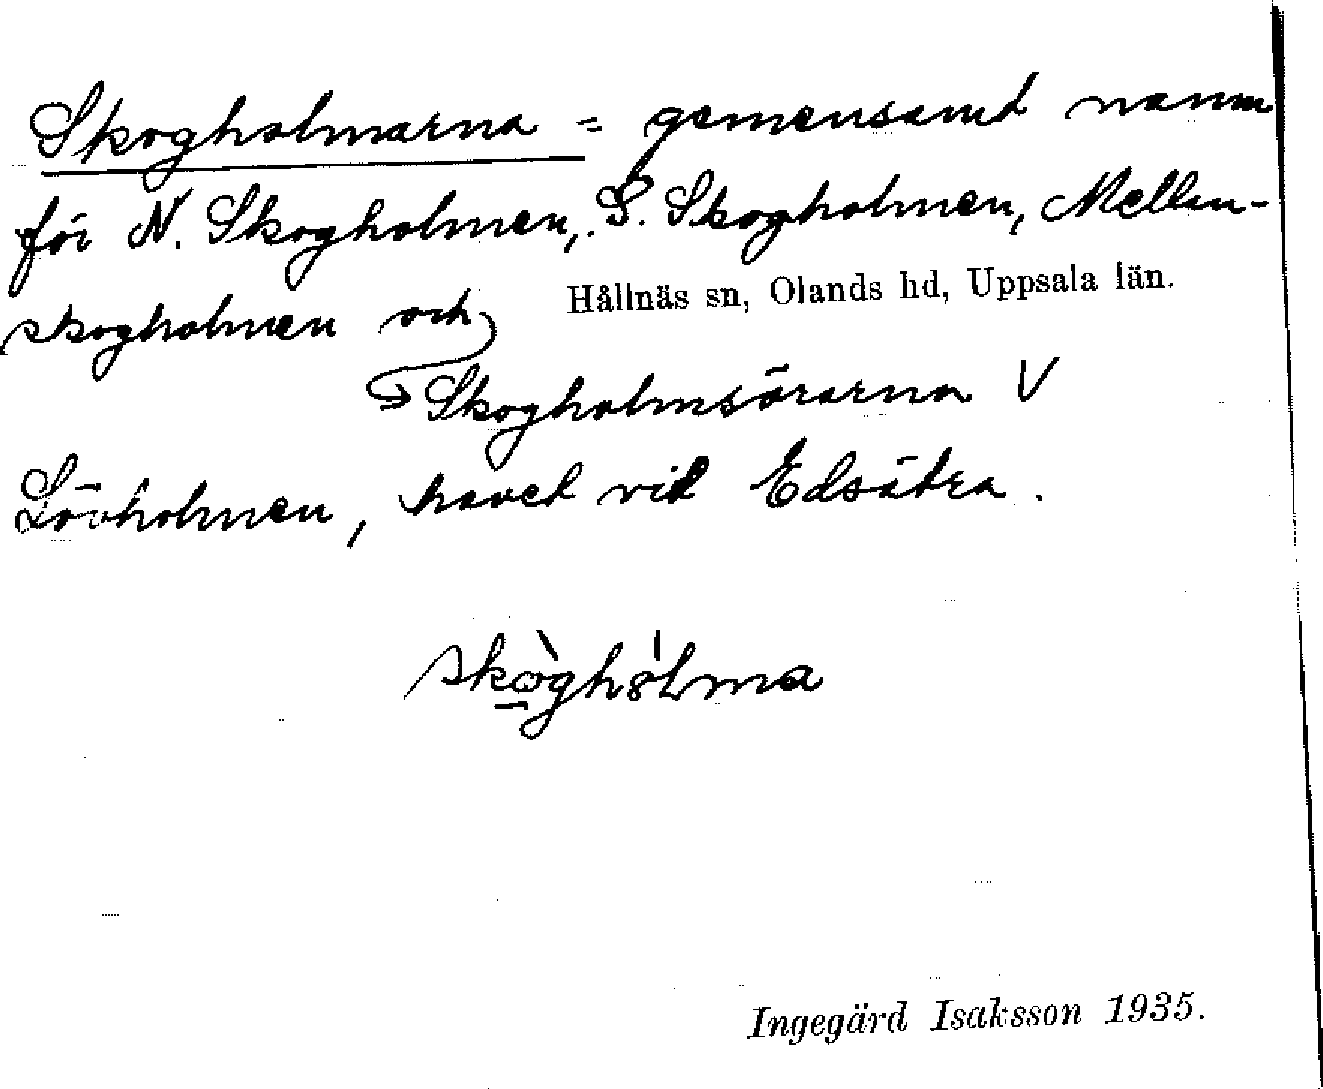 Skogholmarna = gemensamt namn
för N. Skogholmen, S. Skogholmen, Mellan-
skogholmen och
Hållnäs sn, Olands hd, Uppsala län.
Skogholmsörarna V
Lövholmen, havet vid Edsätra.
skò̱ghól̵ma
Ingegärd Isaksson 1935.